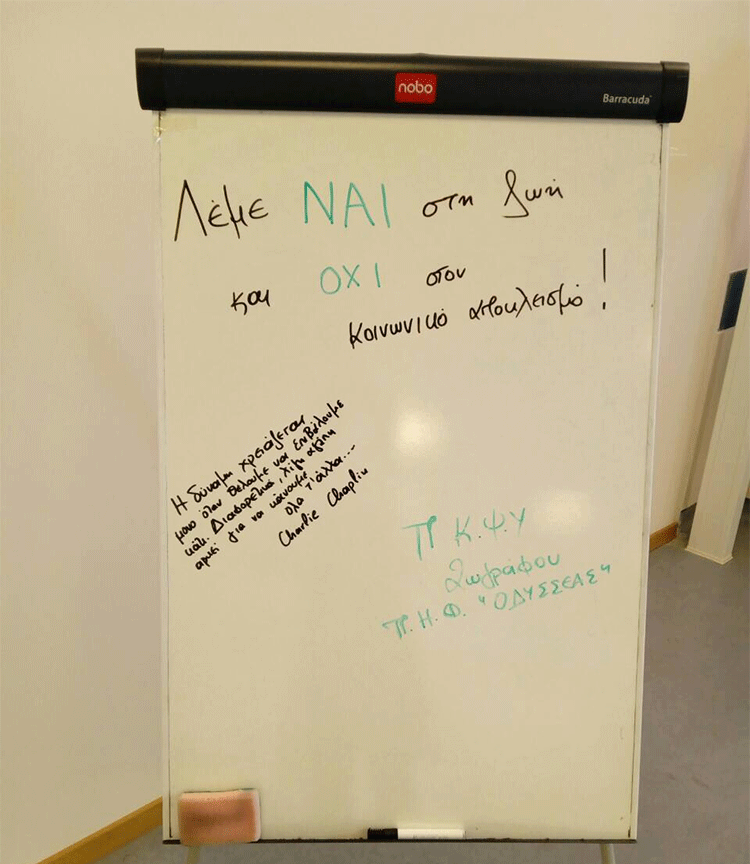 nobo
Barracuda
Λέμε ΝΑΙ στη ζωή
και ΟΧΙ στον
κοινωνικό αποκλεισμό!
Η δύναμη χρειάζεται
μόνο όταν θέλουμε να επιβάλουμε
κάτι. Διαφορετικά, λίγη αγάπη
αρκεί για να κάνουμε
όλα τ' άλλα...
Charlie Chaplin
Π Κ.Ψ.Υ
Ζωγράφου
Π.Η.Φ. "ΟΔΥΣΣΕΑΣ"